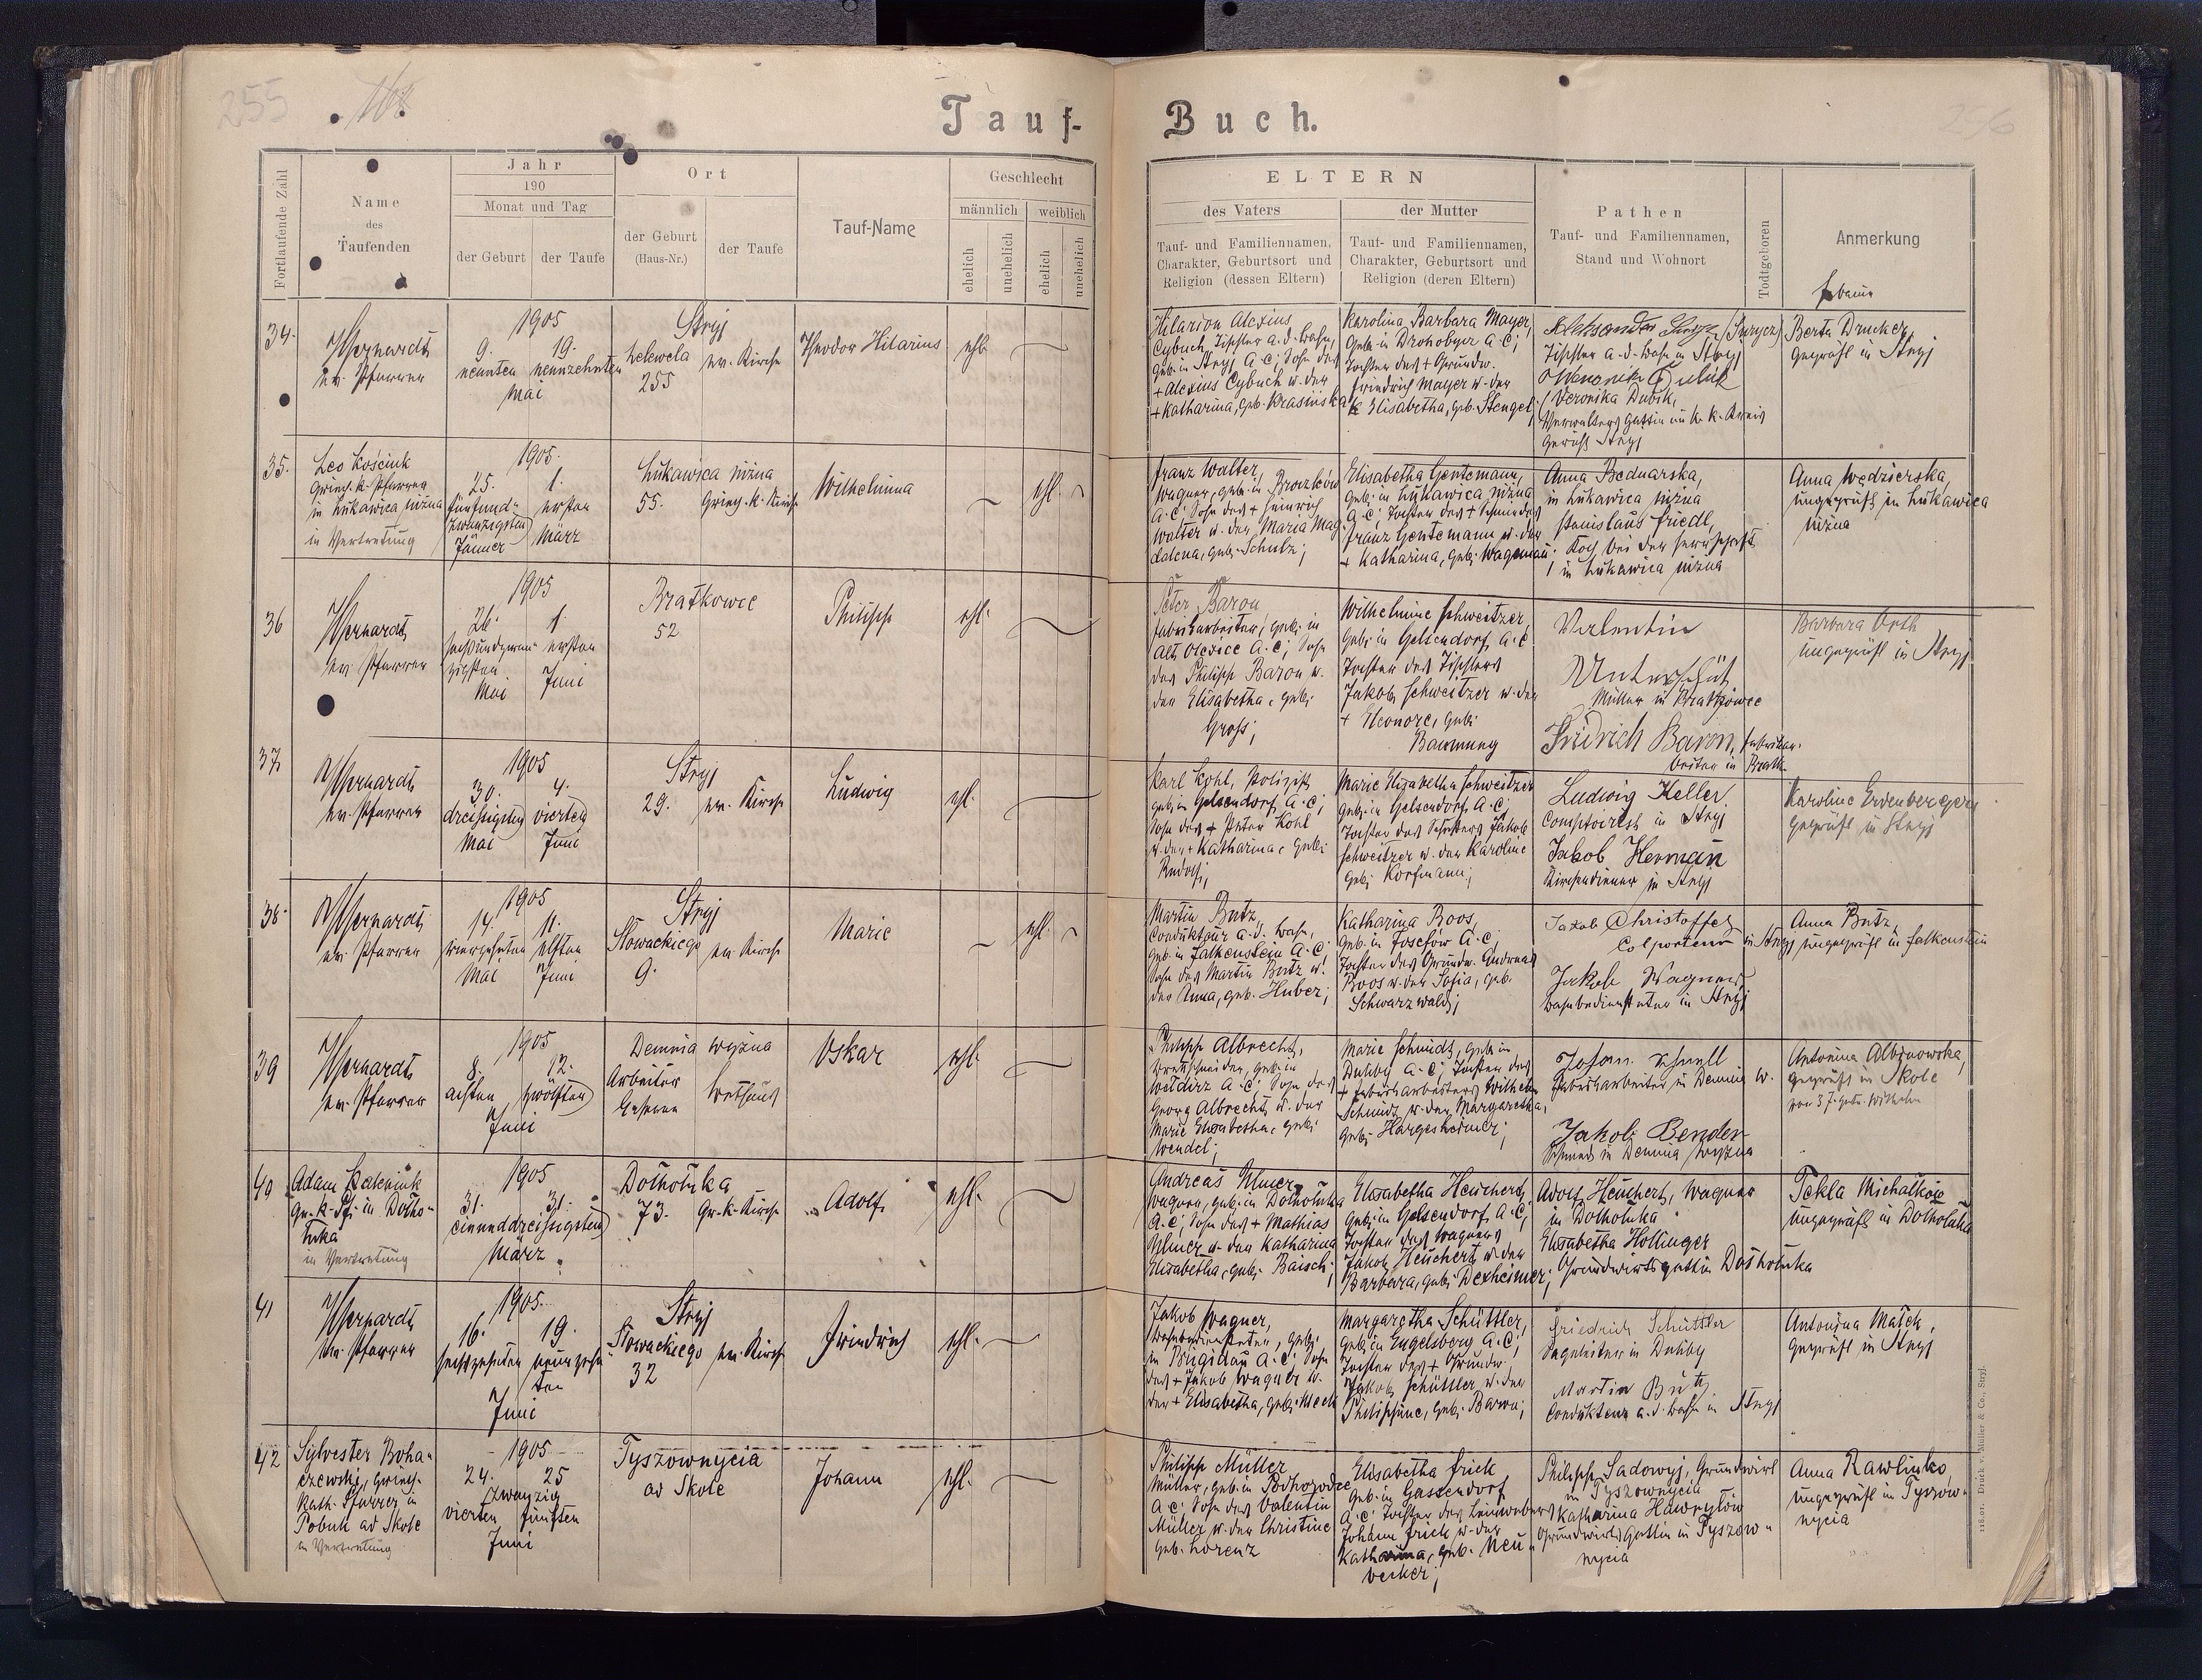 255
Tauf-Buch.
256
Fortlaufende Zahl
Name
des
Taufenden
Jahr
190
Monat und Tag
der Geburt
der Taufe
Ort
der Geburt
(Haus-Nr.)
der Taufe
Tauf-Name
Geschlecht
männlich
weiblich
ehelich
unehelich
ehelich
unehelich
ELTERN
des Vaters
Tauf- und Familiennamen,
Charakter, Geburtsort und
Religion (dessen Eltern)
der Mutter
Tauf- und Familiennamen,
Charakter, Geburtsort und
Religion (deren Eltern)
Pathen
Tauf- und Familiennamen,
Stand und Wohnort
Todtgeboren
Anmerkung
34.
ev. Pfarrer
1905
9. 19.
neunten neunzehnten
Mai
Stryj
255
ev. Kirche
Theodor Hilarius
ehl.
Hilarion Alexius
Cybuch, Tischler a. d. Bahn,
geb. in Stryj A. C; Sohn des
+ Alexius Cybuch u. der
+ Katharina, geb. Krasinska
Karolina Barbara Mayer,
geb. in Drohobycz A. C;
Tochter des + Grundw.
Friedrich Mayer u. der
Elisabetha, geb. Stengel;
Tischler a. d. Bahn in Stryj
(Veronika Dubik,
Verwalters Gattin im k. k. Kreis
Gericht Stryj
Berta Drucker,
geprüft in Stryj
35.
Leo Kościuk
Griech. k. Pfarrer
in Łukawica niżna
in Vertretung
1905.
25. 1.
fünfund- ersten
zwanzigsten
Jänner März
Łukawica niżna
55. Griech. k. Kirche
Wilhelmina
ehl.
Franz Walter,
Wagner, geb. in
A. C; Sohn des + Heinrich
Walter u. der Maria Mag-
dalena, geb. Schulz;
Elisabetha Gentemann,
geb. in Łukawica niżna
A. C; Tochter des + Schmiedes
Franz Gentemann u. der
+ Katharina, geb. Wagemann;
Anna Bednarska,
in Łukawica niżna
Stanislaus Friedl,
Koch bei der Herrschaft
in Łukawica niżna
Anna Wędzierska,
ungeprüft in Łukawica
niżna
36
ev. Pfarrer
1905
26. 1.
sechsundzwan- ersten
zigsten
Mai Juni
Bratkowce
52
Philipp
ehl.
Peter Baron
Fabriksarbeiter, geb. in
Alt Oleksice A. C; Sohn
des Philipp Baron u.
der Elisabetha, geb.
Gross;
Wilhelmine Schweitzer,
geb. in Gelsendorf, A. C
Tochter des Tischlers
Jakob Schweitzer u. der
+ Eleonore, geb.
Baumung
Valentin
Unterschüt
Müller in Bratkowce
Fridrich Baron,
Barbara Orth
ungeprüft in Stryj
37.
ev. Pfarrer
1905
30. 4.
dreissigsten vierten
Mai Juni
Stryj
29. ev. Kirche
Ludwig
ehl.
Karl Kohl, Polizist
geb. in Gelsendorf, A. C;
Sohn des + Peter Kohl
u. der + Katharina, geb.
Rudolf;
Marie Elisabetha Schweitzer
geb. in Gelsendorf, A. C;
Tochter des Jakob
Schweitzer u. der Karoline
geb. Korfmann;
Ludwig Keller,
Comptoirist in Stryj
Jakob Herman
Kirchendiener in Stryj
Karoline Erdenberger
geprüft in Stryj
38.
ev. Pfarrer
1905
14. 11.
vierzehnten elften
Mai Juni
Stryj
Słowackiego ev. Kirche
9.
Marie
ehl.
Martin Butz,
Condukteur a. d. Bahn,
geb. in Falkenstein A. C;
Sohn des Martin Butz u.
der Anna, geb. Huber;
Katharina Roos,
geb. in Josefów A. C;
Tochter des Grundw. Andreas
Roos u. der Sofia, geb.
Schwarzwald;
Jakob Christoffel
Colporteur in Stryj
Jakob Wagner
Bahnbediensteter in Stryj
Anna Butz,
ungeprüft in Falkenstein
39
ev. Pfarrer
1905
8. 12.
achten zwölften
Juni
Demnia wyżna
Arbeiter
Bethaus
Oskar
ehl.
Philipp Albrecht,
Brettschneider, geb. in
Weldzirz A. C; Sohn des
Georg Albrecht u. der
Marie Elisabetha, geb.
Wendel;
Marie Schmidt, geb. in
Dubby A. C; Tochter des
+ Fabriksarbeiters Wilhelm
Schmidt u. der Margaretha,
geb. Hargesheimer;
Johann Schnell
Fabriksarbeiter in Demnia w.
Jakob Bender
Schmied in Demnia wyżna
Antonina Albinowska,
geprüft in Skole
40
Adam
Gr. k. Pf. in Dołho-
łuka
in Vertretung
1905
31. 31.
einunddreissigsten
März
Dołhołuka
73. Gr. k. Kirche
Adolf
ehl.
Andreas Ulmer,
Wagner, geb. in Dołhołuka
A. C; Sohn des + Mathias
Ulmer u. der Katharina
Elisabetha, geb. Baisch;
Elisabetha Heuchert,
geb. in Gelsendorf, A. C;
Tochter des Wagners
Jakob Heuchert u. der
Barbara, geb. Dexheimer;
Adolf Heuchert, Wagner
in Dołhołuka
Elisabetha Hollinger
Grundwirtsgattin Dołhołuka
Tekla Michalków
ungeprüft in Dołhołuka
41
ev. Pfarrer
1905.
16. 19.
sechszehnten neunzehn-
ten
Juni
Stryj
Słowackiego ev. Kirche
32
Friedrich
ehl.
Jakob Wagner,
Bahnbediensteter, geb.
in Brigidau A. C; Sohn
des + Jakob Wagner u.
der + Elisabetha, geb. Mech
Margaretha Schüttler,
geb. in Engelsberg A. C;
Tochter des + Grundw.
Jakob Schüttler u. der
Philippine, geb. Baron;
Friedrich Schüttler
Sägeleiter in Dubby
Martin Butz
Condukteur a. d. Bahn in Stryj
Antonina Małek,
geprüft in Stryj
42
Sylvester Boha-
czewski, griech.
kath. Pfarrer in
Pobuk ad Skole
in Vertretung
1905
24. 25
zwanzig
vierten fünften
Juni
Tyszownycia
ad Skole
Johann
ehl.
Philipp Müller
Müller, geb. in Podhorodce
A. C; Sohn des Valentin
Müller u. der Christine
geb. Lorenz
Elisabetha Frick
geb. in Gassendorf
A. C; Tochter des Leinwebers
Johann Frick u. der
Katharina, geb. Neu-
becker;
Philipp Sadowyj, Grundwirt
in Tyszownycia
Katharina Hawryłów
Grundwirts Gattin in Tyszow-
nycia
Anna Rawlinko,
ungeprüft in Tyszow-
nycia
118.01. Druck v. Müller & Co., Stryj.